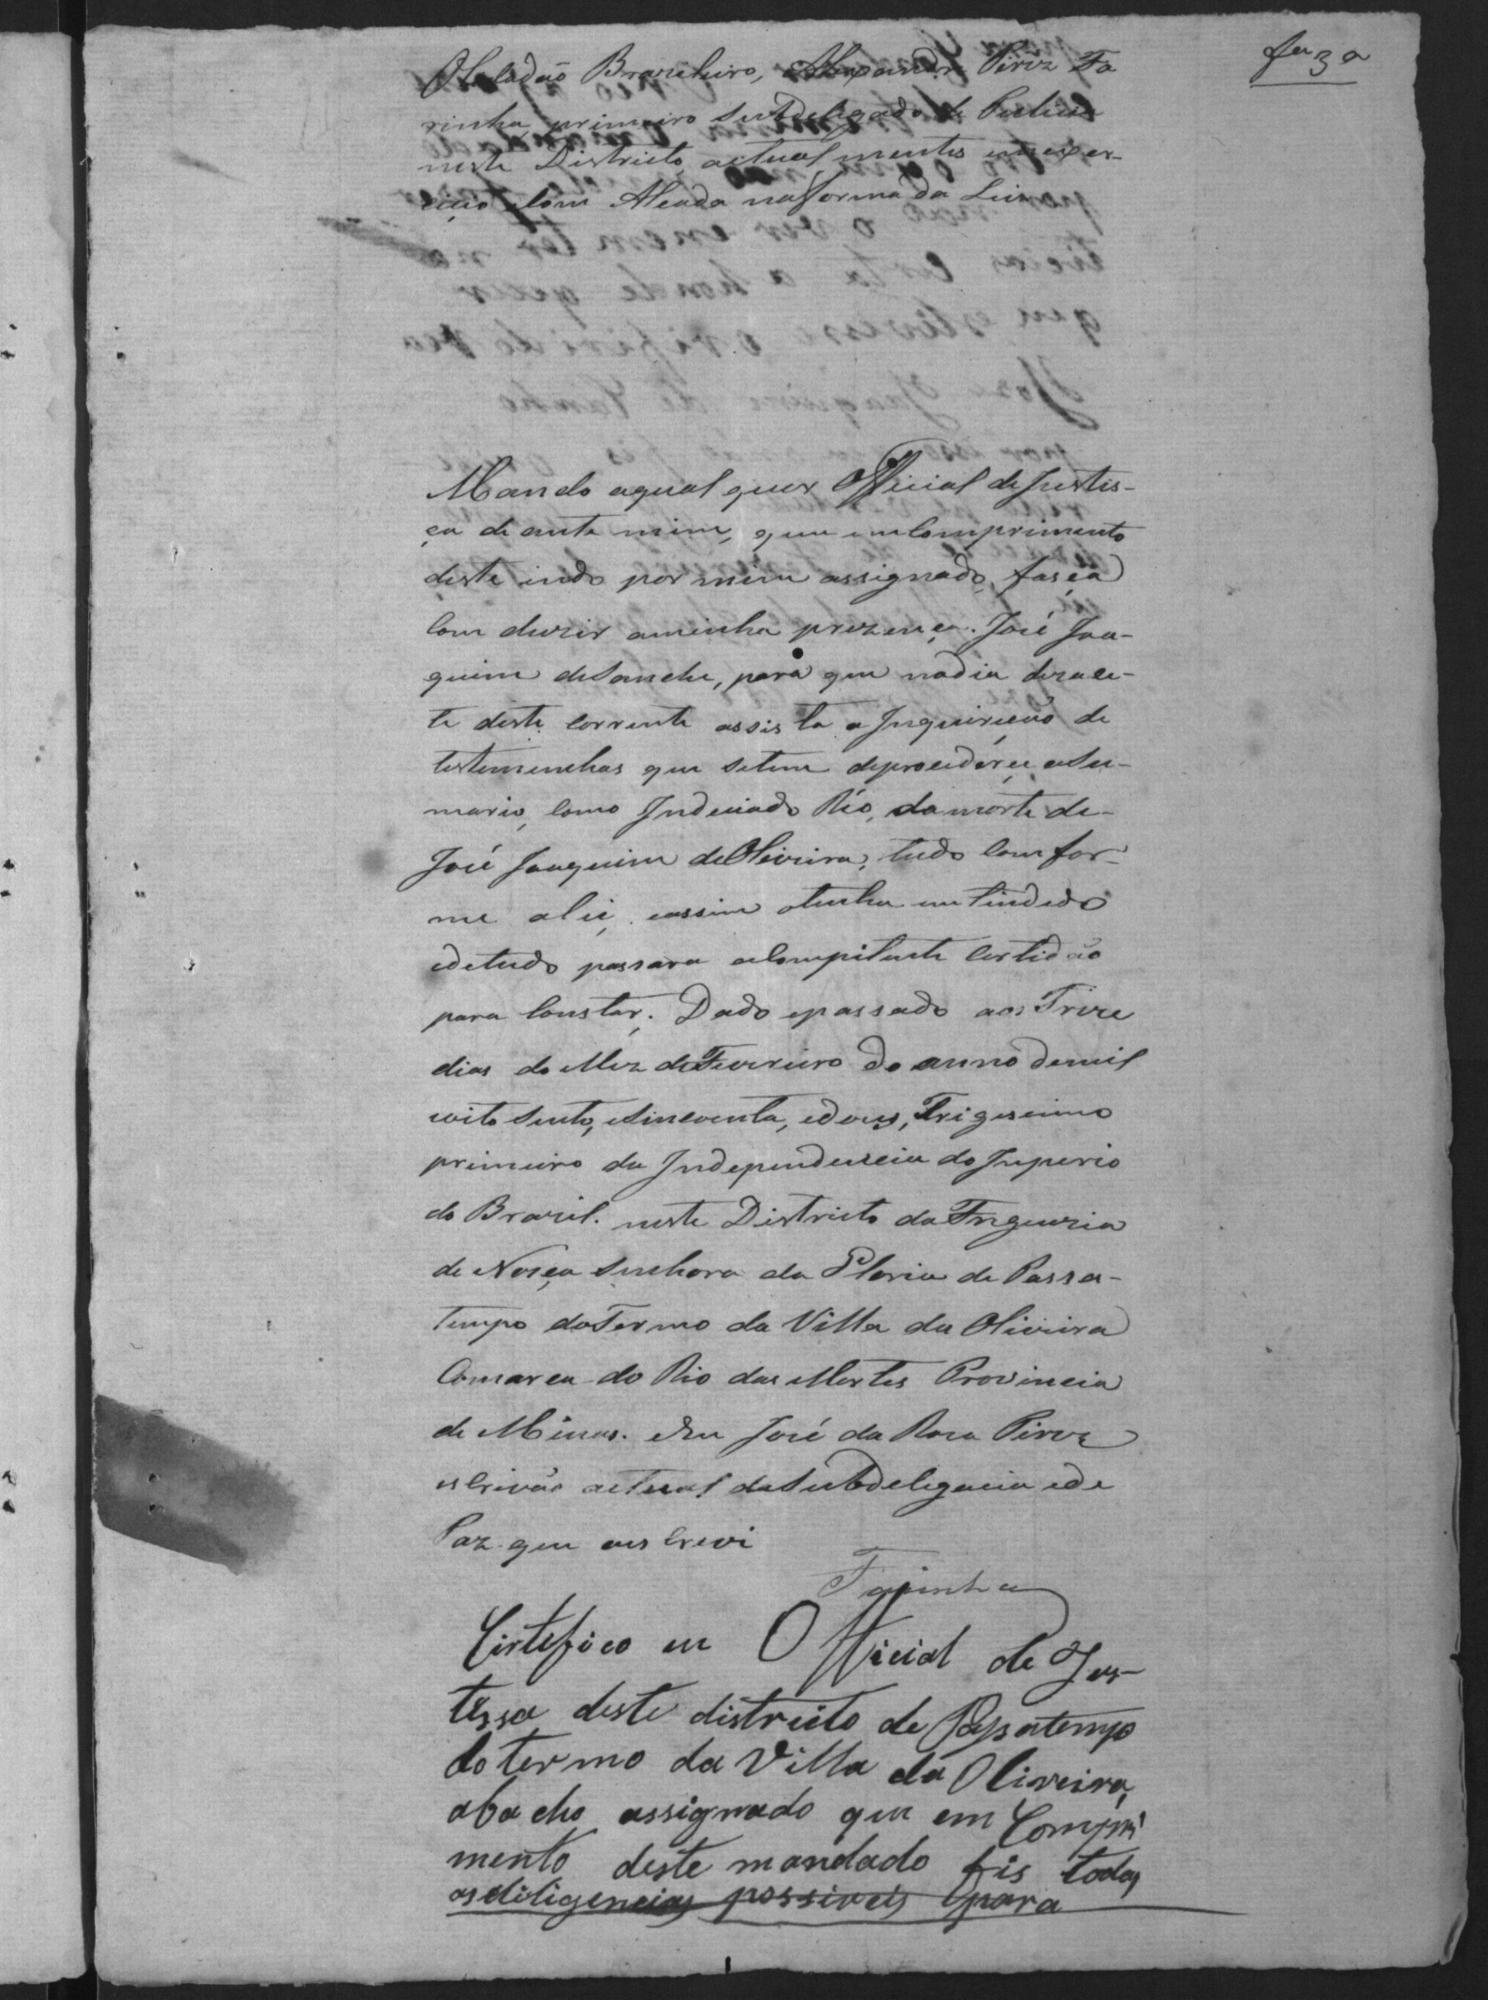 O Cidadão Brazeleiro, Alexandre Pirez Fa
rinha, primeiro Subdelegado de Pulicia
neste Districto, actualmentes em exer-
cicio com Alcada na forma da Lei
Mando aqual quer Official de Justis-
ça de ante mim, que em Comprimento
deste indo por mim assignado, fasça
Com duzir aminha prezença. José Joa-
quim de Sancha, para que nodia dezace-
te deste Corrente assista a Inquirição de
testemunhas que setem deproceder, eu aSu-
mario, Como Indeciado Réo, da morte de
José Joaquim de Oliveira, tudo Com for-
me alei, eassim otenha em tindedo
edetudo passara a Compitente Certidão
para Constar. Dado epassado aos Trize
dias do Mez de Fevereiro do anno de mil
oito Sento, eSincoenta, edous, Trigesimo
primeiro da Independencia do Imperio
do Brazil. neste Districto da Freguezia
de Nosça Senhora da Gloria de Passa-
tempo do Termo da Villa da Oliveira
Comarca do Rio das Mortes Provincia
de Minas. eEu José da Roza Pirez
escrivão actual da Subdelegacia ede
Paz que o es Crevi
Farinha
Certefico eu Official de Jus-
tissa deste districto de Passatempo
do termo da Villa da Oliveira,
abacho assignado que em Compri
mento deste mandado fis todas
as diligencias possiveis para